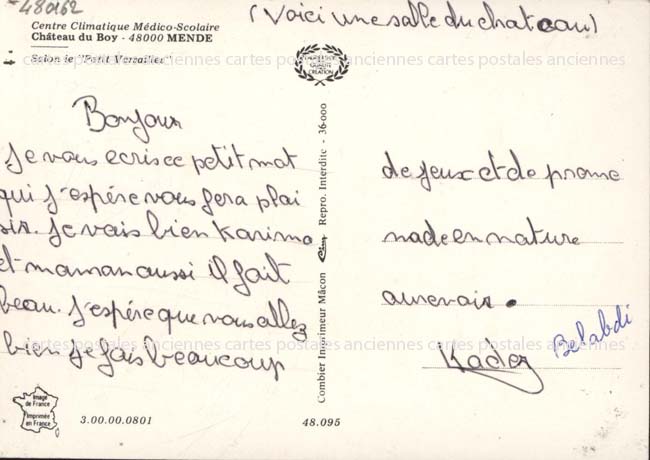 480162
(Voici une salle du chateau)
Centre Climatique Médico-Scolaire
Château du Boy - 48000 MENDE
Salon le "Petit Versailles"
cartes postales anciennes cartes postales anciennes cartes postales anciennes
Bonjour
Je vous ecris ce petit mot
qui j'espére vous fera plai
sir. Je vais bien Karima
et maman aussi il fait
beau. J'espére que vous allez
bien je fais beaucoup
de jeux et de prome
nade en nature
aurevoir.
Kader
Belabdi
cartes postales anciennes cartes postales anciennes cartes postales anciennes
Combier Imprimeur Mâcon Cim Repro. Interdite - 36-000
Image
de France
Imprimée
en France
3.00.00.0801
48.095